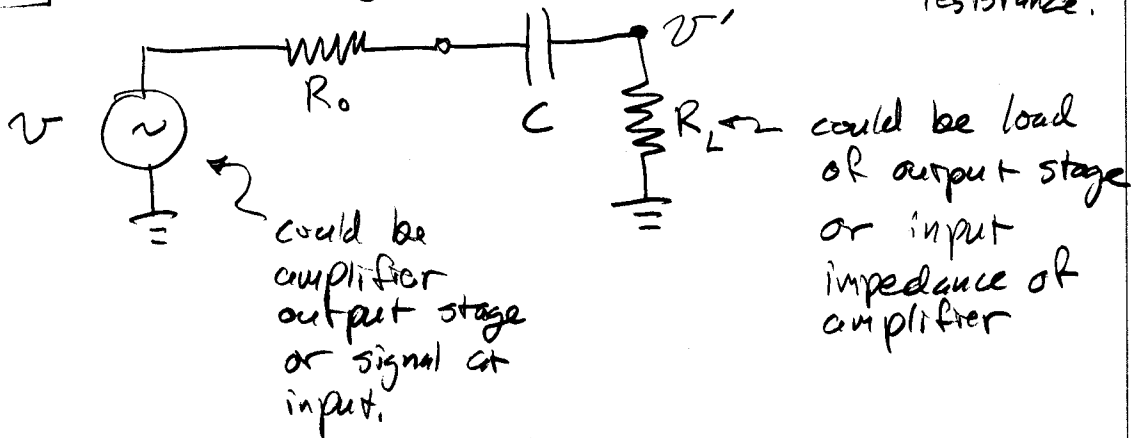 resistance.
v'
R₀
C
v
~
R_L could be load
of output stage
or input
impedance of
amplifier
could be
amplifier
output stage
or signal at
input.